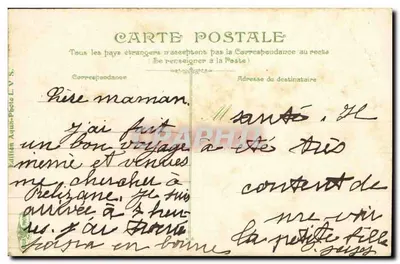 CARTE POSTALE
Tous les pays étrangers n'acceptent pas la Correspondance au recto
(Se renseigner à la Poste)
Correspondance
Adresse du destinataire
Chère maman,
j'ai fait
un bon voyage
meme et venues
me chercher à
Relizane. Je suis
arrivée à 2 heu-
res. j'ai trouvé
en bonnes
santé. Il
à été très
content de
me voir
la petite fille
Edition Aqua-Photo L. V. S.